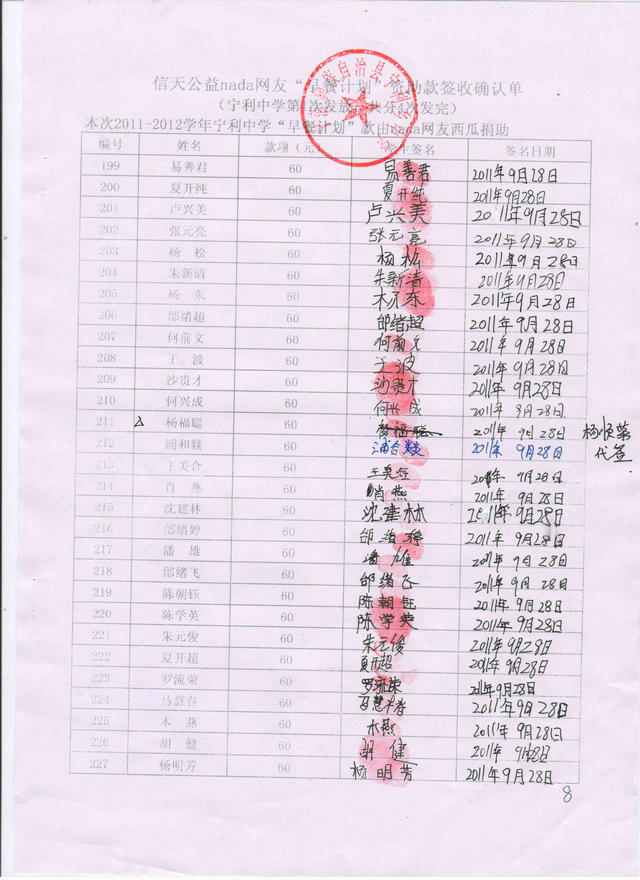 信天公益nada网友“早餐计划”资助款签收确认单
（宁利中学第1次发放，共分4次发完）
本次2011-2012学年宁利中学“早餐计划”款由nada网友西瓜捐助
编号 姓名 款项（元） 学生签名 签名日期
199 易善君 60 易善君 2011年9月28日
200 夏开纯 60 夏开纯 2011年9月28日
201 卢兴美 60 卢兴美 2011年9月28日
202 张元亮 60 张元亮 2011年9月28日
203 杨松 60 杨松 2011年9月28日
204 朱新清 60 朱新清 2011年9月28日
205 杨东 60 杨东 2011年9月28日
206 邰绪超 60 邰绪超 2011年9月28日
207 何前文 60 何前文 2011年9月28日
208 王波 60 王波 2011年9月28日
209 沙贵才 60 沙贵才 2011年9月28日
210 何兴成 60 何兴成 2011年9月28日
211 杨福聪 60 杨福聪 2011年9月28日 杨顺第
212 浦和燚 60 浦合燚 2011年9月28日 代签
213 王美合 60 王美合 2011年9月28日
214 肖燕 60 肖燕 2011年9月28日
215 沈建林 60 沈建林 2011年9月28日
216 邰绪婷 60 邰绪婷 2011年9月28日
217 潘雄 60 潘雄 2011年9月28日
218 邰绪飞 60 邰绪飞 2011年9月28日
219 陈朝钰 60 陈朝钰 2011年9月28日
220 陈学英 60 陈学英 2011年9月28日
221 朱元俊 60 朱元俊 2011年9月28日
222 夏开超 60 夏开超 2011年9月28日
223 罗流荣 60 罗流荣 2011年9月28日
224 马慧春 60 马慧春 2011年9月28日
225 木燕 60 木燕 2011年9月28日
226 胡健 60 胡健 2011年9月28日
227 杨明芳 60 杨明芳 2011年9月28日
8